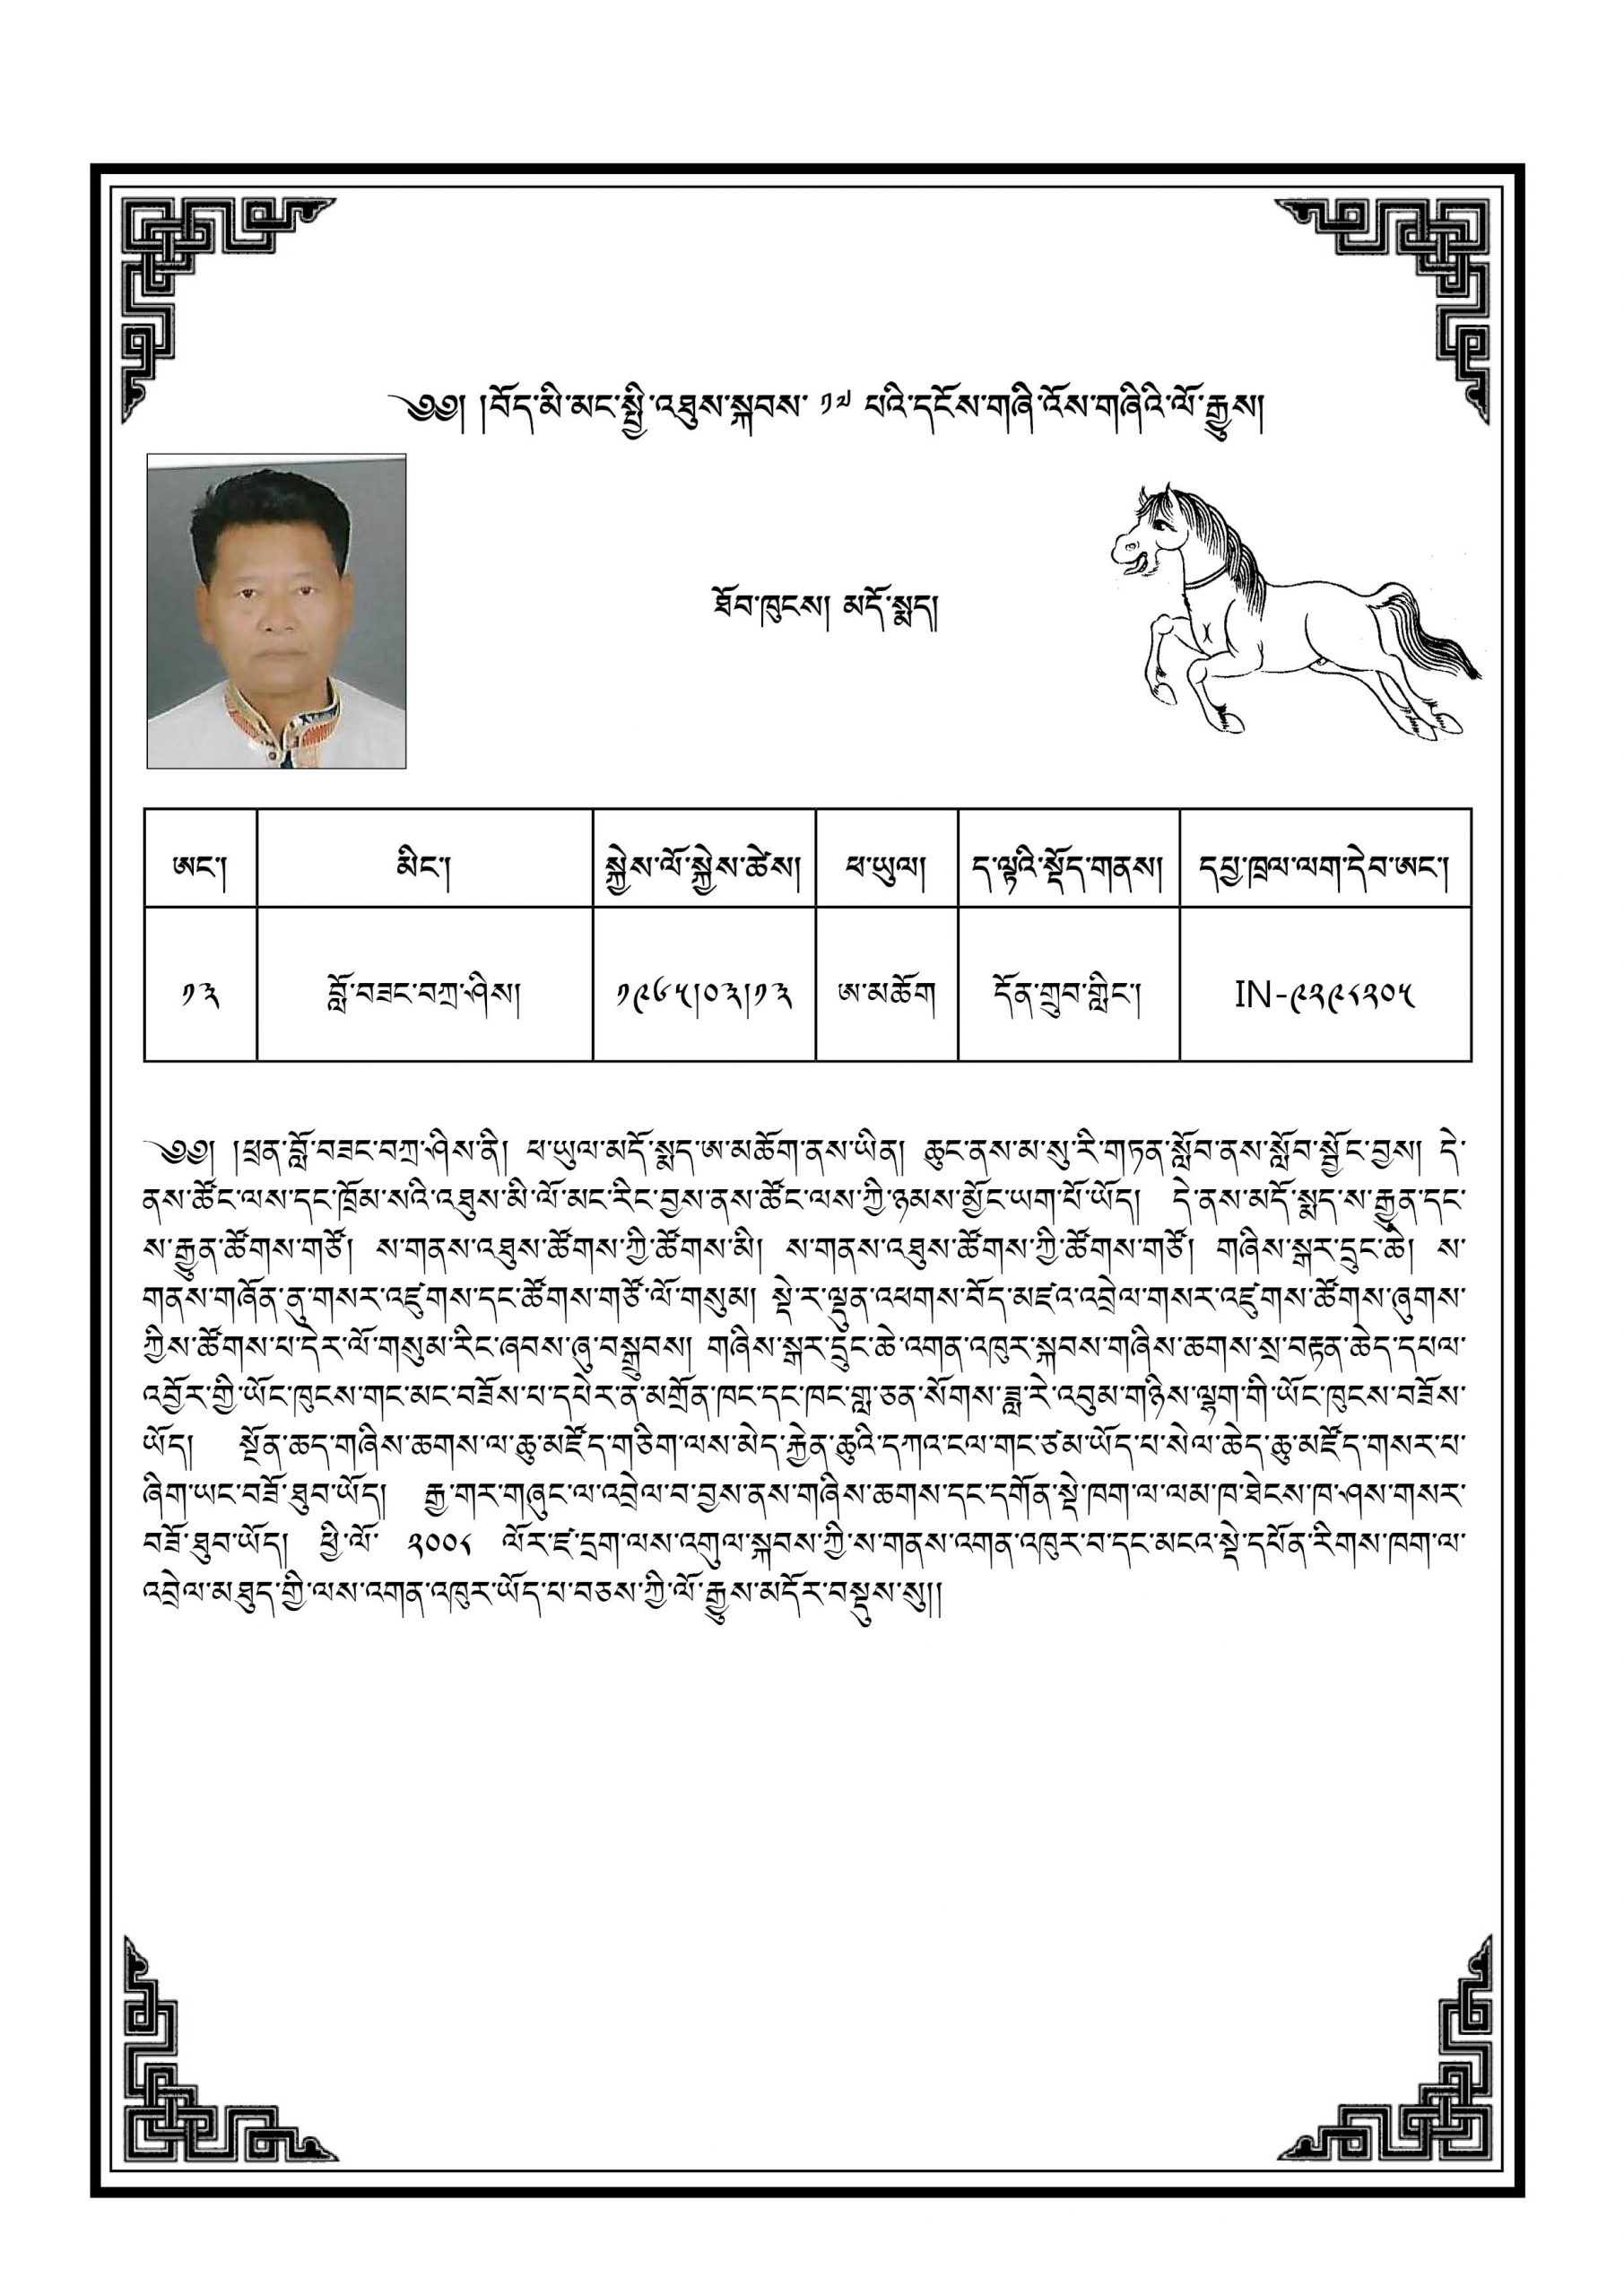 ༄༅། །བོད་མི་མང་སྤྱི་འཐུས་སྐབས་ ༡༧ པའི་དངོས་གཞི་འོས་གཞིའི་ལོ་རྒྱུས།
ཐོབ་ཁུངས། མདོ་སྨད།
ཨང་། མིང་། སྐྱེས་ལོ་སྐྱེས་ཚེས། ཕ་ཡུལ། ད་ལྟའི་སྡོད་གནས། དཔྱ་ཁྲལ་ལག་དེབ་ཨང་།
༡༣ བློ་བཟང་བཀྲ་ཤིས། ༡༩༦༥།༠༣།༡༣ ཨ་མཆོག དོན་གྲུབ་གླིང་། IN-༩༢༩༨༢༠༥
༄༅། །ཕྲན་བློ་བཟང་བཀྲ་ཤིས་ནི། ཕ་ཡུལ་མདོ་སྨད་ཨ་མཆོག་ནས་ཡིན། ཆུང་ནས་མ་སུ་རི་གཏན་སློབ་ནས་སློབ་སྦྱོང་བྱས། དེ་
ནས་ཚོང་ལས་དང་ཁྲོམ་སའི་འཐུས་མི་ལོ་མང་རིང་བྱས་ནས་ཚོང་ལས་ཀྱི་ཉམས་མྱོང་ཡག་པོ་ཡོད། དེ་ནས་མདོ་སྨད་ས་རྒྱུན་དང་
ས་རྒྱུན་ཚོགས་གཙོ། ས་གནས་འཐུས་ཚོགས་ཀྱི་ཚོགས་མི། ས་གནས་འཐུས་ཚོགས་ཀྱི་ཚོགས་གཙོ། གཞིས་སྒར་དྲུང་ཆེ། ས་
གནས་གཞོན་ནུ་གསར་འཛུགས་དང་ཚོགས་གཙོ་ལོ་གསུམ། སྡེ་ར་ལྡུན་འཕགས་བོད་མཛའ་འབྲེལ་གསར་འཛུགས་ཚོགས་ཞུགས་
ཀྱིས་ཚོགས་པ་དེར་ལོ་གསུམ་རིང་ཞབས་ཞུ་བསྒྲུབས། གཞིས་སྒར་དྲུང་ཆེ་འགན་འཁུར་སྐབས་གཞིས་ཆགས་སྲ་བརྟན་ཆེད་དཔལ་
འབྱོར་གྱི་ཡོང་ཁུངས་གང་མང་བཟོས་པ་དཔེར་ན་མགྲོན་ཁང་དང་ཁང་གླ་ཅན་སོགས་ཟླ་རེ་འབུམ་གཉིས་ལྷག་གི་ཡོང་ཁུངས་བཟོས་
ཡོད། སྔོན་ཆད་གཞིས་ཆགས་ལ་ཆུ་མཛོད་གཅིག་ལས་མེད་རྐྱེན་ཆུའི་དཀའ་ངལ་གང་ཙམ་ཡོད་པ་སེལ་ཆེད་ཆུ་མཛོད་གསར་པ་
ཞིག་ཡང་བཟོ་ཐུབ་ཡོད། རྒྱ་གར་གཞུང་ལ་འབྲེལ་བ་བྱས་ནས་གཞིས་ཆགས་དང་དགོན་སྡེ་ཁག་ལ་ལམ་ཁ་ཐེངས་ཁ་ཤས་གསར་
བཟོ་ཐུབ་ཡོད། ཕྱི་ལོ་ ༢༠༠༨ ལོར་ཛ་དྲག་ལས་འགུལ་སྐབས་ཀྱི་ས་གནས་འགན་འཁུར་བ་དང་མངའ་སྡེ་དཔོན་རིགས་ཁག་ལ་
འབྲེལ་མཐུད་ཀྱི་ལས་འགན་འཁུར་ཡོད་པ་བཅས་ཀྱི་ལོ་རྒྱུས་མདོར་བསྡུས་སུ།།